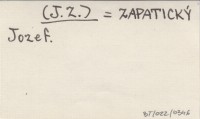 (J.Z.) = ZAPATICKÝ
Jozef.
BT/022/0346